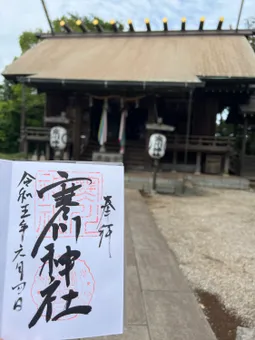 奉拝
寒川神社
令和五年六月四日